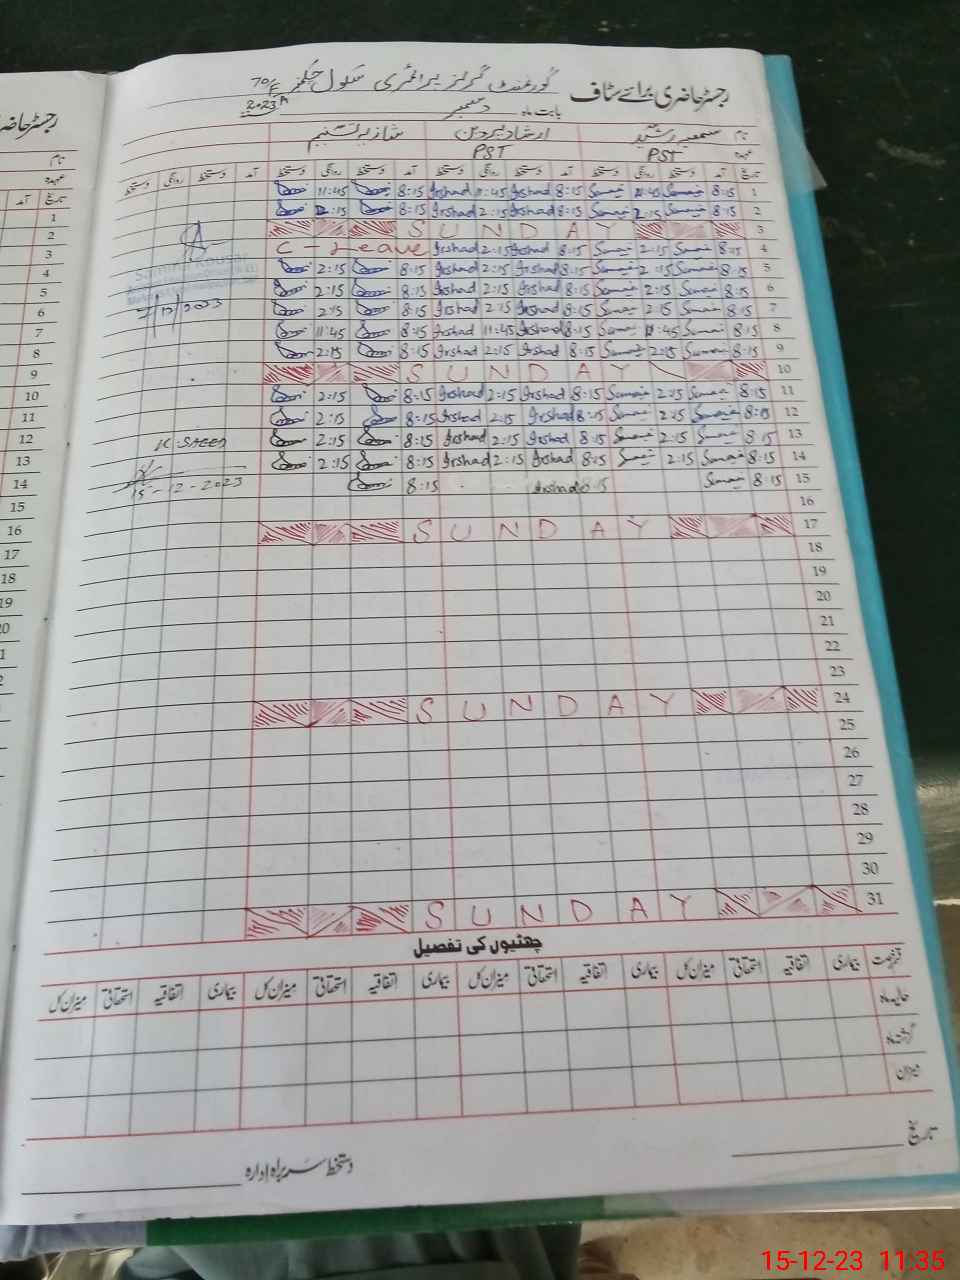 رجسٹر حاضری برائے سٹاف گورنمنٹ گرلز پرائمری سکول 70/F
بابت ماہ دسمبر 2023
نام سمعیہ رشید ارشاد پروین شازیہ تسنیم
عہدہ PST PST
تاریخ آمد دستخط روانگی دستخط آمد دستخط روانگی دستخط آمد دستخط روانگی دستخط آمد دستخط روانگی دستخط
1 8:15 11:45 8:15 Irshad 11:45 Irshad 8:15 11:45
2 8:15 2:15 8:15 Irshad 2:15 Irshad 8:15 2:15
3 SUNDAY
4 8:15 2:15 8:15 Irshad 2:15 Irshad C-Leave
5 8:15 2:15 8:15 Irshad 2:15 Irshad 8:15 2:15
6 8:15 2:15 8:15 Irshad 2:15 Irshad 8:15 2:15
7 8:15 2:15 8:15 Irshad 2:15 Irshad 8:15 2:15
8 8:15 11:45 8:15 Irshad 11:45 Irshad 8:15 11:45
9 8:15 2:15 8:15 Irshad 2:15 Irshad 8:15 2:15
10 SUNDAY
11 8:15 2:15 8:15 Irshad 2:15 Irshad 8:15 2:15
12 8:15 2:15 8:15 Irshad 2:15 Irshad 8:15 2:15
13 8:15 2:15 8:15 Irshad 2:15 Irshad 8:15 2:15
14 8:15 2:15 8:15 Irshad 2:15 Irshad 8:15 2:15
15 8:15 8:15 Irshad 8:15
15-12-2023
16
17 SUNDAY
18
19
20
21
22
23
24 SUNDAY
25
26
27
28
29
30
31 SUNDAY
چھٹیوں کی تفصیل
قسم رخصت بیماری اتفاقیہ استحقاقی میزان کل بیماری اتفاقیہ استحقاقی میزان کل بیماری اتفاقیہ استحقاقی میزان کل بیماری اتفاقیہ استحقاقی میزان کل
حالیہ ماہ
گزشتہ ماہ
میزان
تاریخ
دستخط سربراہ ادارہ
15-12-23 11:35